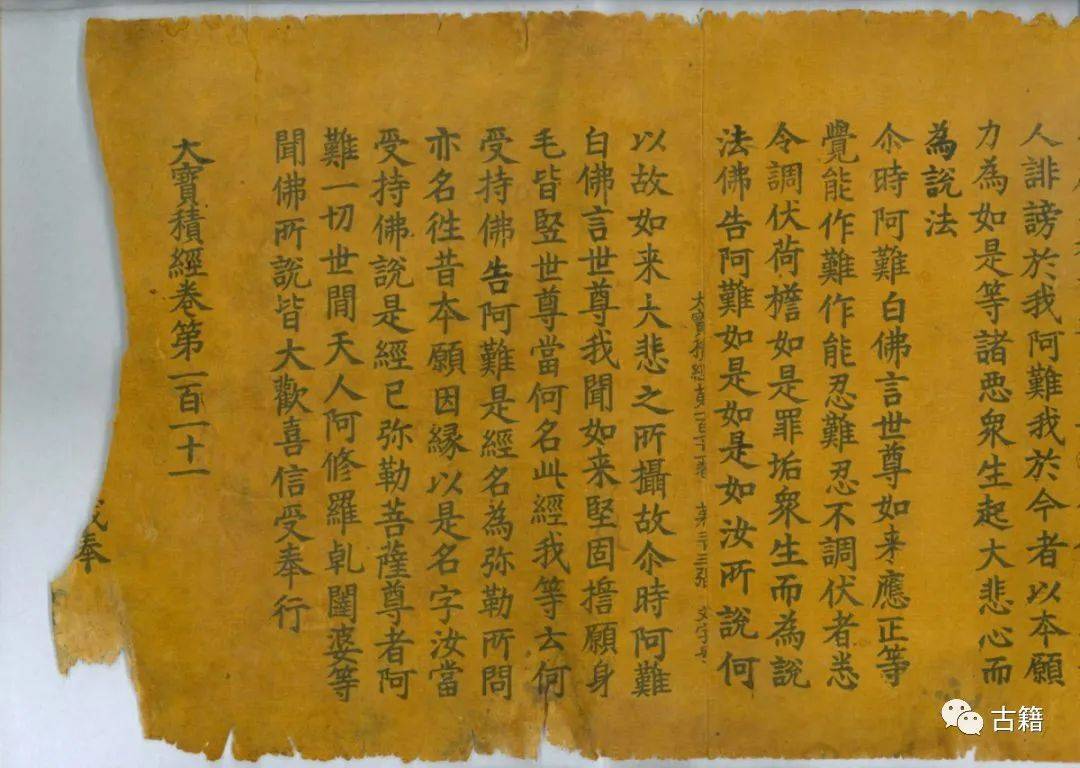 人誹謗於我阿難我於今者以本願
力為如是等諸惡衆生起大悲心而
為說法
尒時阿難白佛言世尊如来應正等
覺能作難作能忍難忍不調伏者悉
令調伏荷檐如是罪垢衆生而為說
法佛告阿難如是如是如汝所說何
大寶積經第一百十一卷 第三張
以故如来大悲之所攝故尒時阿難
白佛言世尊我聞如来堅固擔願身
毛皆竪世尊當何名此經我等云何
受持佛告阿難是經名為弥勒所問
亦名徃昔本願因緣以是名字汝當
受持佛說是經已弥勒菩薩尊者阿
難一切世間天人阿修羅乹闥婆等
聞佛所說皆大歡喜信受奉行
大寶積經卷第一百一十一
奉
古籍